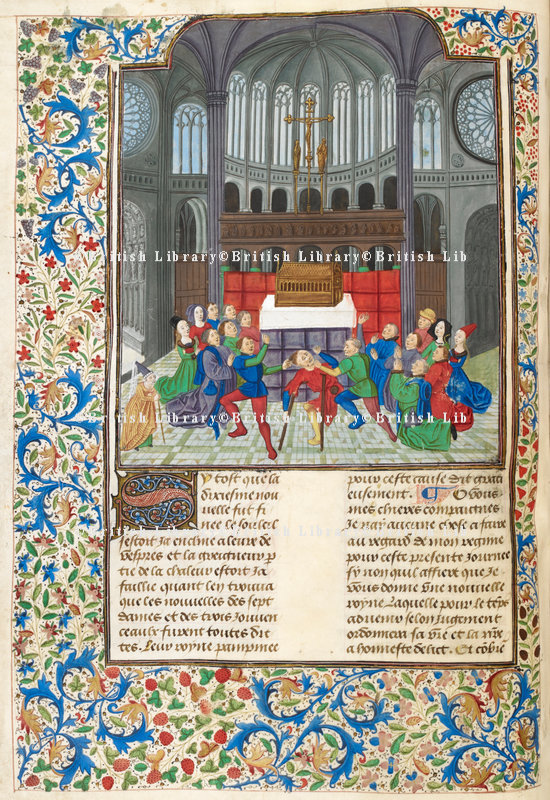 British Library©British Library©British Lib
British Library©British Library©British Lib
British Library©British Library©British Lib
Sy tost que la
dixiesme nou
uelle fut fi
nee et souleil
sestoit ja enclin a leure de
vespres et la greigneur p
tie de la chaleur estoit Ja
faillie quant len trouua
que les nouuelles des sept
dames et des trois Jouuen
ceaulx furent toutes dit
tes. Leur royne pampinee
pour ceste cause dit graci
eusement. O vous
mes chieres compaignes
Je nay aucune chose a faire
au regard de mon regime
pour ceste presente Journee
sy non quil affiert que Je
vous donne vne nouuelle
royne Laquelle pour le tẽps
aduenir selon Jugement
ordonnera sa vie et la nr̃e
a honneste delict. Et cõbiẽ
British Library©British Library©British Lib